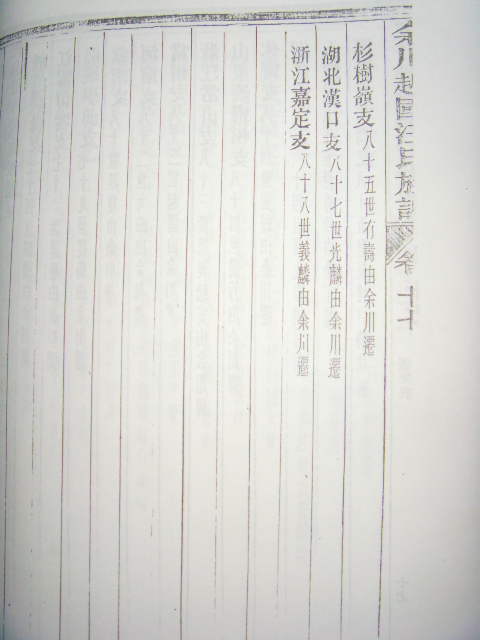 余川越國汪氏族譜 卷十七
杉樹嶺支 八十五世有壽由余川遷
湖北漢口支 八十七世光麟由余川遷
浙江嘉定支 八十八世義麟由余川遷